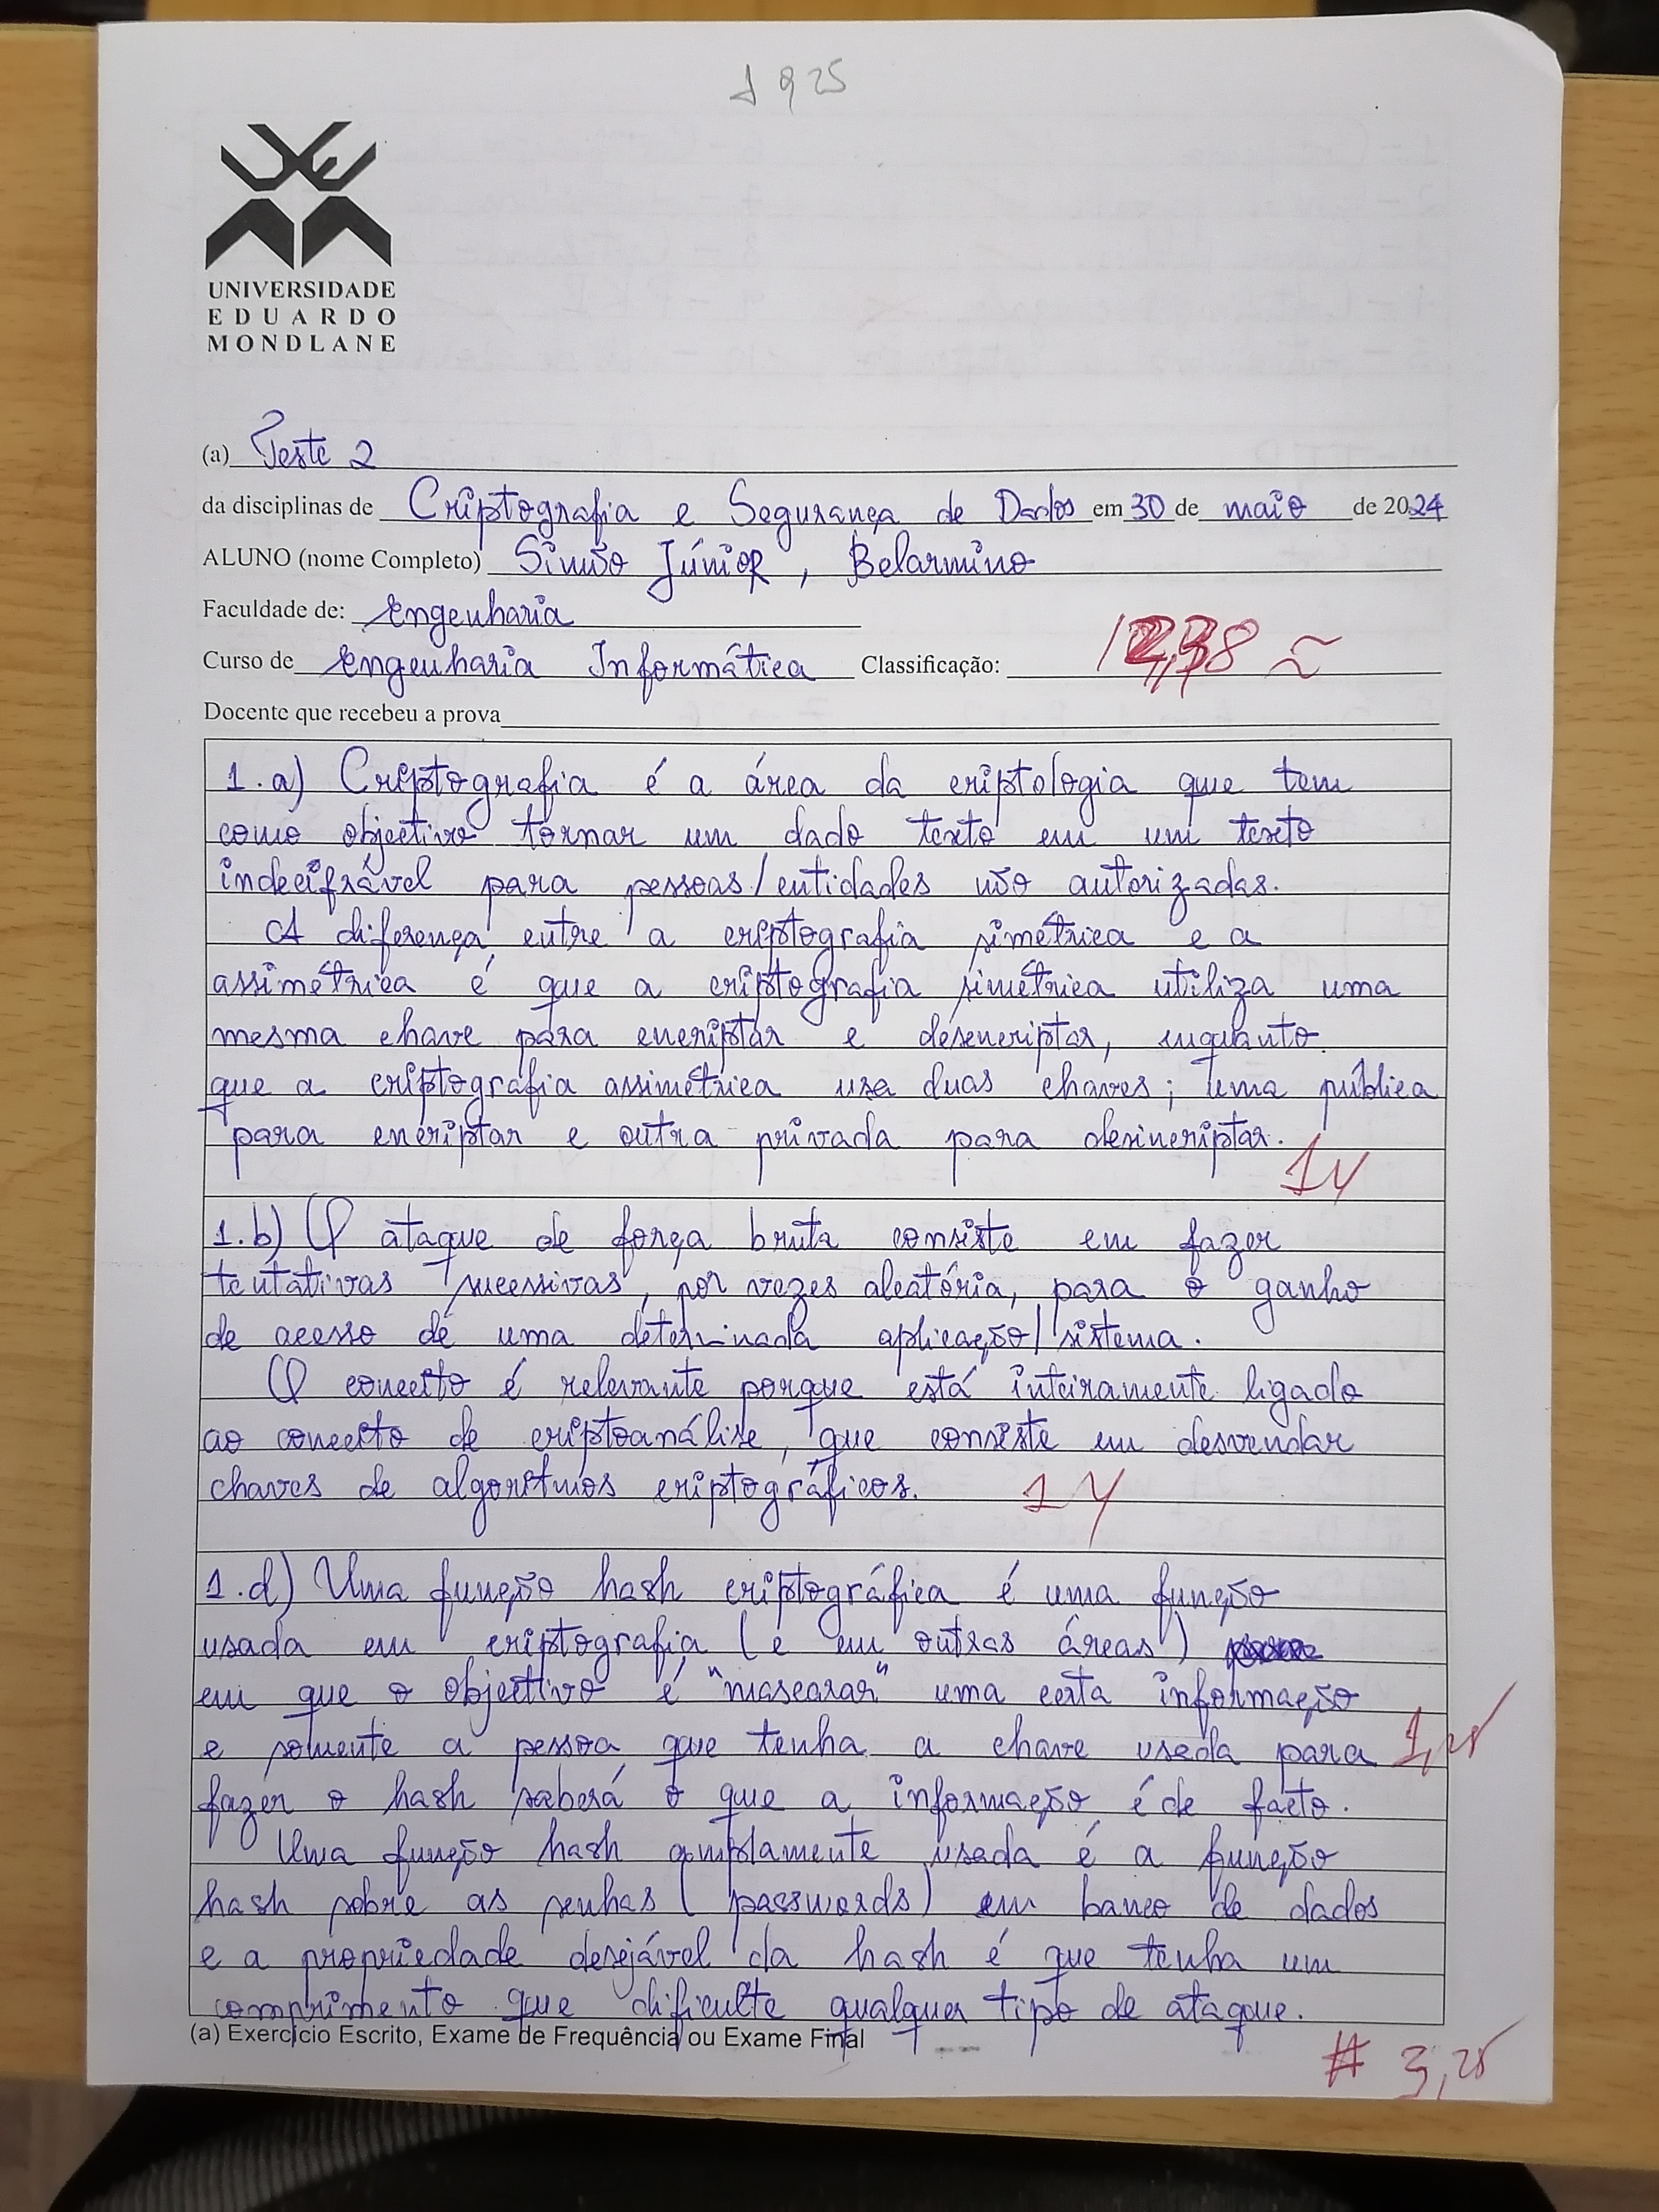 1925
UNIVERSIDADE
EDUARDO
MONDLANE
(a) Teste 2
da disciplinas de Criptografia e Segurança de Dados em 30 de maio de 2024
ALUNO (nome Completo) Simão Júnior, Belarmino
Faculdade de: Engenharia
Curso de Engenharia Informática Classificação:
Docente que recebeu a prova
1.a) Criptografia é a área da criptologia que tem
como objectivo tornar um dado texto em um texto
indecifrável para pessoas/entidades não autorizadas.
A diferença entre a criptografia simétrica e a
assimétrica é que a criptografia simétrica utiliza uma
mesma chave para encriptar e desencriptar, enquanto
que a criptografia assimétrica usa duas chaves; uma pública
para encriptar e outra privada para desincriptar.
1
1.b) O ataque de força bruta consiste em fazer
tentativas sucessivas, por vezes aleatória, para o ganho
de acesso de uma determinada aplicação/sistema.
O conceito é relevante porque está inteiramente ligado
ao conceito de criptoanálise, que consiste em desvendar
chaves de algoritmos criptográficos.
1
1.d) Uma função hash criptográfica é uma função
usada em criptografia (e em outras áreas)
em que o objectivo é "mascarar" uma certa informação
e somente a pessoa que tenha a chave usada para 1,25
fazer o hash saberá o que a informação é de facto.
Uma função hash amplamente usada é a função
hash sobre as senhas (passwords) em banco de dados
e a propriedade desejável da hash é que tenha um
comprimento que dificulte qualquer tipo de ataque.
(a) Exercício Escrito, Exame de Frequência ou Exame Final
# 3,25